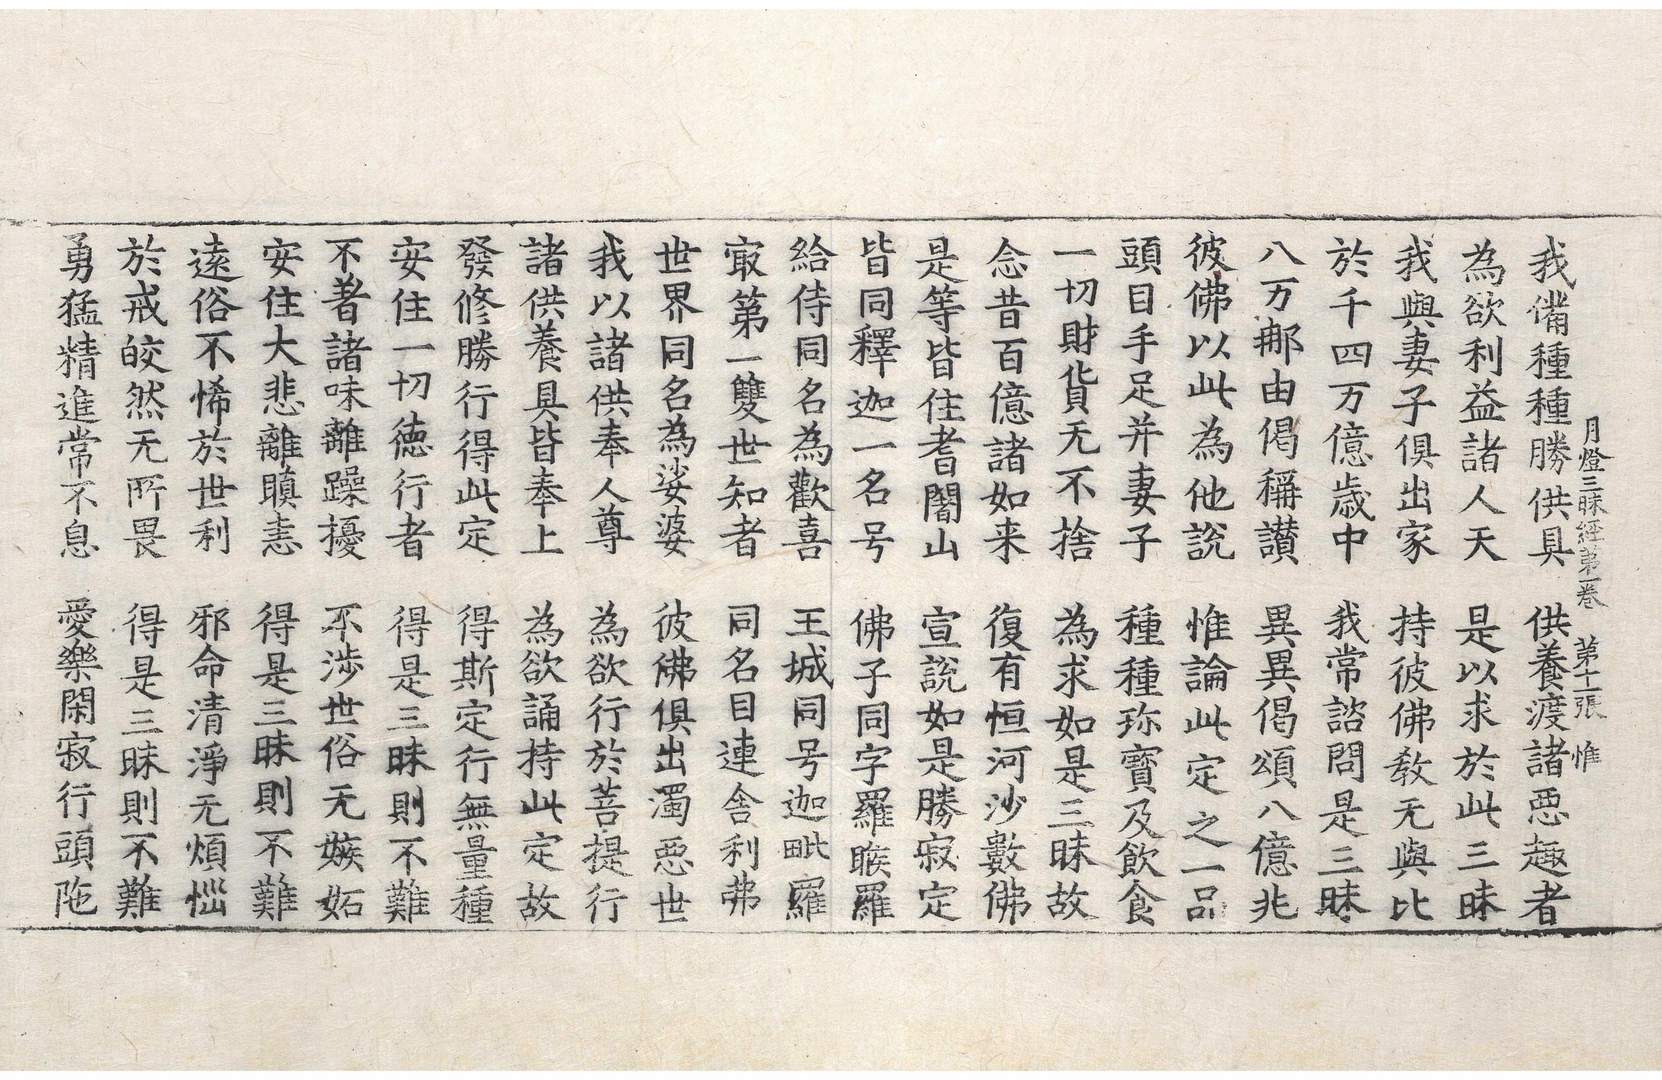 月燈三昧經第一卷 第十一張 惟
我俻種種勝供具 供養渡諸惡趣者
為欲利益諸人天 是以求於此三昧
我與妻子俱出家 持彼佛教无與比
於千四万億歳中 我常諮問是三昧
八万𨚗由偈稱讃 異異偈頌八億兆
彼佛以此為他說 惟論此定之一品
頭目手足并妻子 種種珎寳及飲食
一切財貨无不捨 為求如是三昧故
念昔百億諸如来 復有恒河沙數佛
是等皆住耆闍山 宣說如是勝寂定
皆同釋迦一名号 佛子同字羅睺羅
給侍同名為歡喜 王城同号迦毗羅
㝡第一雙世知者 同名目連舍利弗
世界同名為娑婆 彼佛俱出濁惡世
我以諸供奉人尊 為欲行於菩提行
諸供養具皆奉上 為欲誦持此定故
發修勝行得此定 得斯定行無量種
安住一切徳行者 得是三昧則不難
不著諸味離躁擾 不涉世俗无嫉妬
安住大悲離瞋恚 得是三昧則不難
遠俗不悕於世利 邪命清淨无煩惱
於戒皎然无所畏 得是三昧則不難
勇猛精進常不息 愛樂閑寂行頭陁